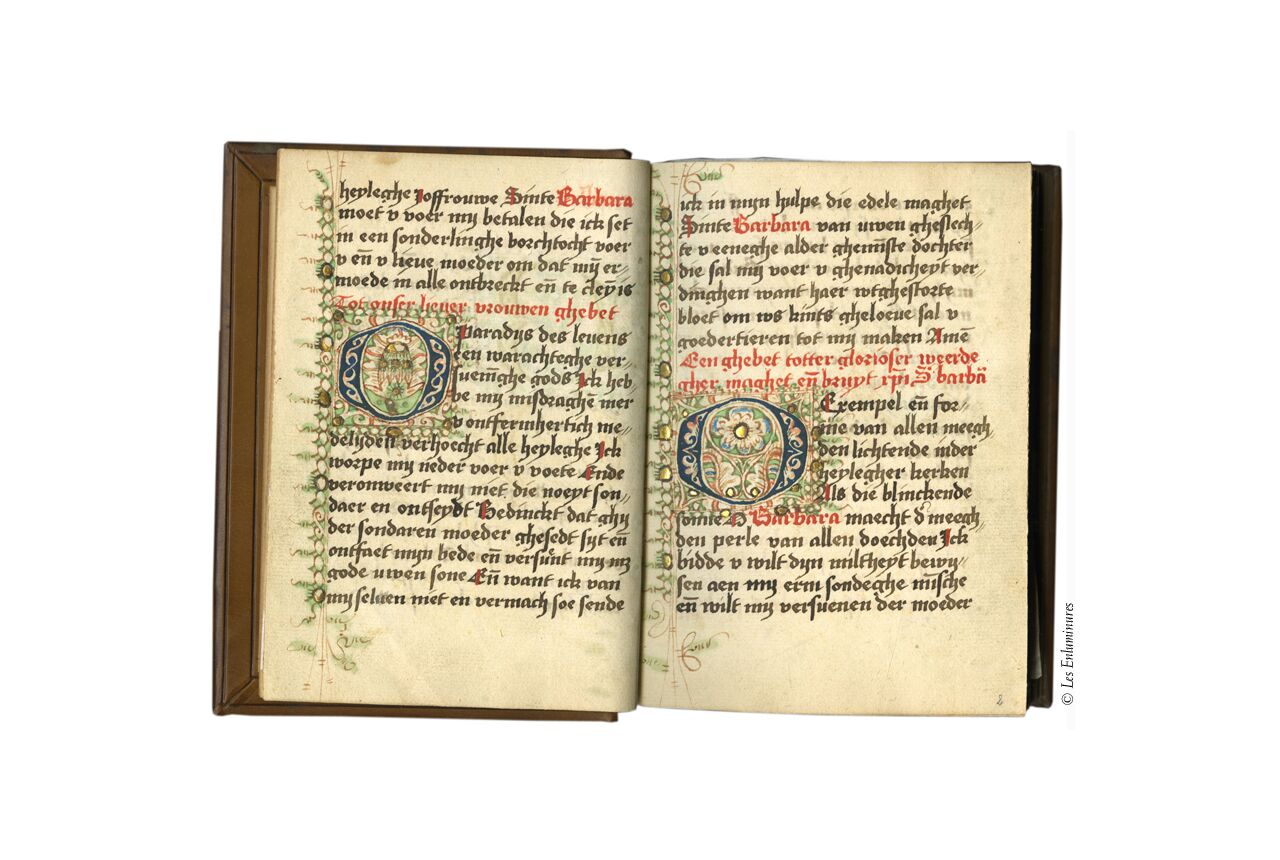 heyleghe Joffrouwe Sinte Barbara
moet v voer my betalen die ick set
in een sonderlinghe borchtocht voer
v en̄ v lieue moeder om dat mÿ er⸗
moede in alle ontbreckt en̄ te cleyn is
Tot onser lieuer vrouwen ghebet
O Paradys des leuens
een warachteghe ver⸗
luemghe gods Ick heb⸗
be my misdraghen mer
v ontfermhertich me⸗
delijden verhoecht alle heyleghe Ick
worpe my neder voer v voete Ende
veronweert my niet die noeyt son⸗
daer en ontseydt Bedinckt dat ghij
der sondaren moeder ghesedt sijt en̄
ontfaet mijn bede en̄ versunt my mz
gode uwen sone En̄ want ick van
my seluen niet en vermach soe sende
ick in mijn hulpe die edele maghet
Sinte Barbara van uwen gheslech⸗
te v eeneghe alder ghemı̄ste dochter
die sal my voer v ghenadicheyt ver⸗
dinghen want haer wtghestorte
bloet om ws kints gheloeue sal v
goedertieren tot my maken Amē
Een ghebet totter glorioser weerde
gher maghet en̄ bruyt xp̄i S̄ barbā
O Exempel en̄ for⸗
me van allen meegh
den lichtende inder
heyleghер kerken
Als die blinckende
sonne O Barbara maecht d̄ meegh⸗
den perle van allen doechden Ick
bidde v wilt dyn miltheyt bewij⸗
sen aen my erm sondeghe mı̄sche
en̄ wilt my versuenen der moeder
2
© Les Enluminures